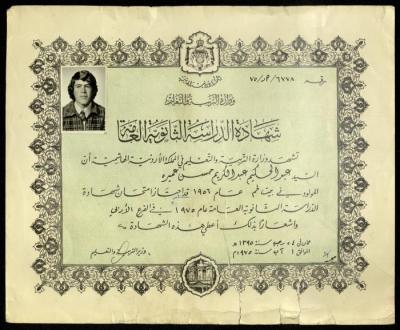 رقم ٧٥/ ٦٧٧٨
وزارة التربية والتعليم
شهادة الدراسة الثانوية العامة
تشهد وزارة التربية والتعليم في المملكة الأردنية الهاشمية أن
السيد عبد الحكيم عبد الكريم حسن
المولود في عام ١٩٥٦ قد اجتاز امتحان شهادة
الدراسة الثانوية العامة عام ١٩٧٥ في الفرع الأدبي
واشعارا بذلك أعطي هذه الشهادة
سنة ١٣٩٥ هـ
الموافق ١ آب سنة ١٩٧٥ م
وزير التربية والتعليم